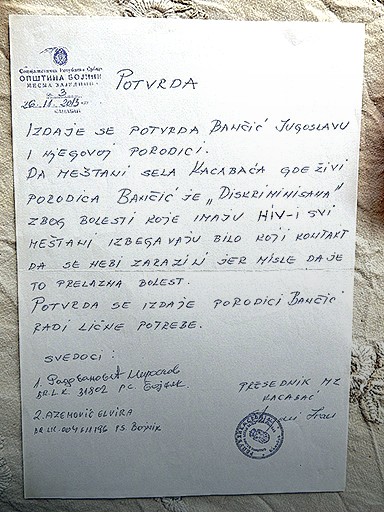 ОПШТИНА БОЈНИК
МЕСНА ЗАЈЕДНИЦА
3
26.11.2013
POTVRDA
IZDAJE SE POTVRDA BANČIĆ JUGOSLAVU
I NJEGOVOJ PORODICI.
DA MEŠTANI SELA KACABAĆA GDE ŽIVI
PORODICA BANČIĆ JE „DISKRIMINISANA"
ZBOG BOLESTI KOJE IMAJU HIV-I SVI
MEŠTANI IZBEGAVAJU BILO KOJI KONTAKT
DA SE NEBI ZARAZILI JER MISLE DA JE
TO PRELAZNA BOLEST.
POTVRDA SE IZDAJE PORODICI BANČIĆ
RADI LIČNE POTREBE.
SVEDOCI:
1.
BR.L.K. 31802 P.S. Bojnik
2. AZEMOVIĆ ELVIRA
BR.LK. PS. Bojnik
PRESEDNIK MZ
KACABAĆ